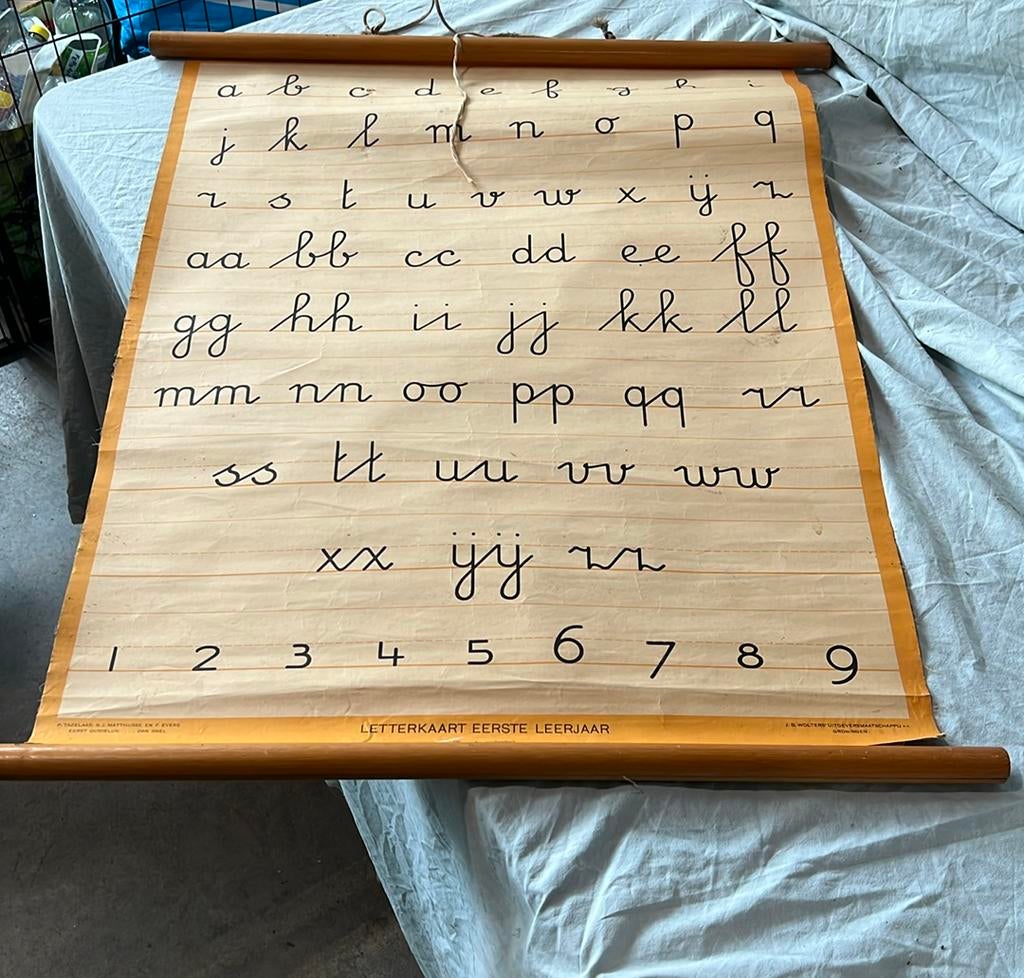 a b c d e f g h i
j k l m n o p q
r s t u v w x ij z
aa bb cc dd ee ff
gg hh ii jj kk ll
mm nn oo pp qq rr
ss tt uu vv ww
xx ijij zz
1 2 3 4 5 6 7 8 9
P. TAZELAAR, G.J. MATTHIJSSE EN F. EVERS
EERST DUIDELIJK DAN SNEL
LETTERKAART EERSTE LEERJAAR
J.B. WOLTERS' UITGEVERSMAATSCHAPPIJ
GRONINGEN